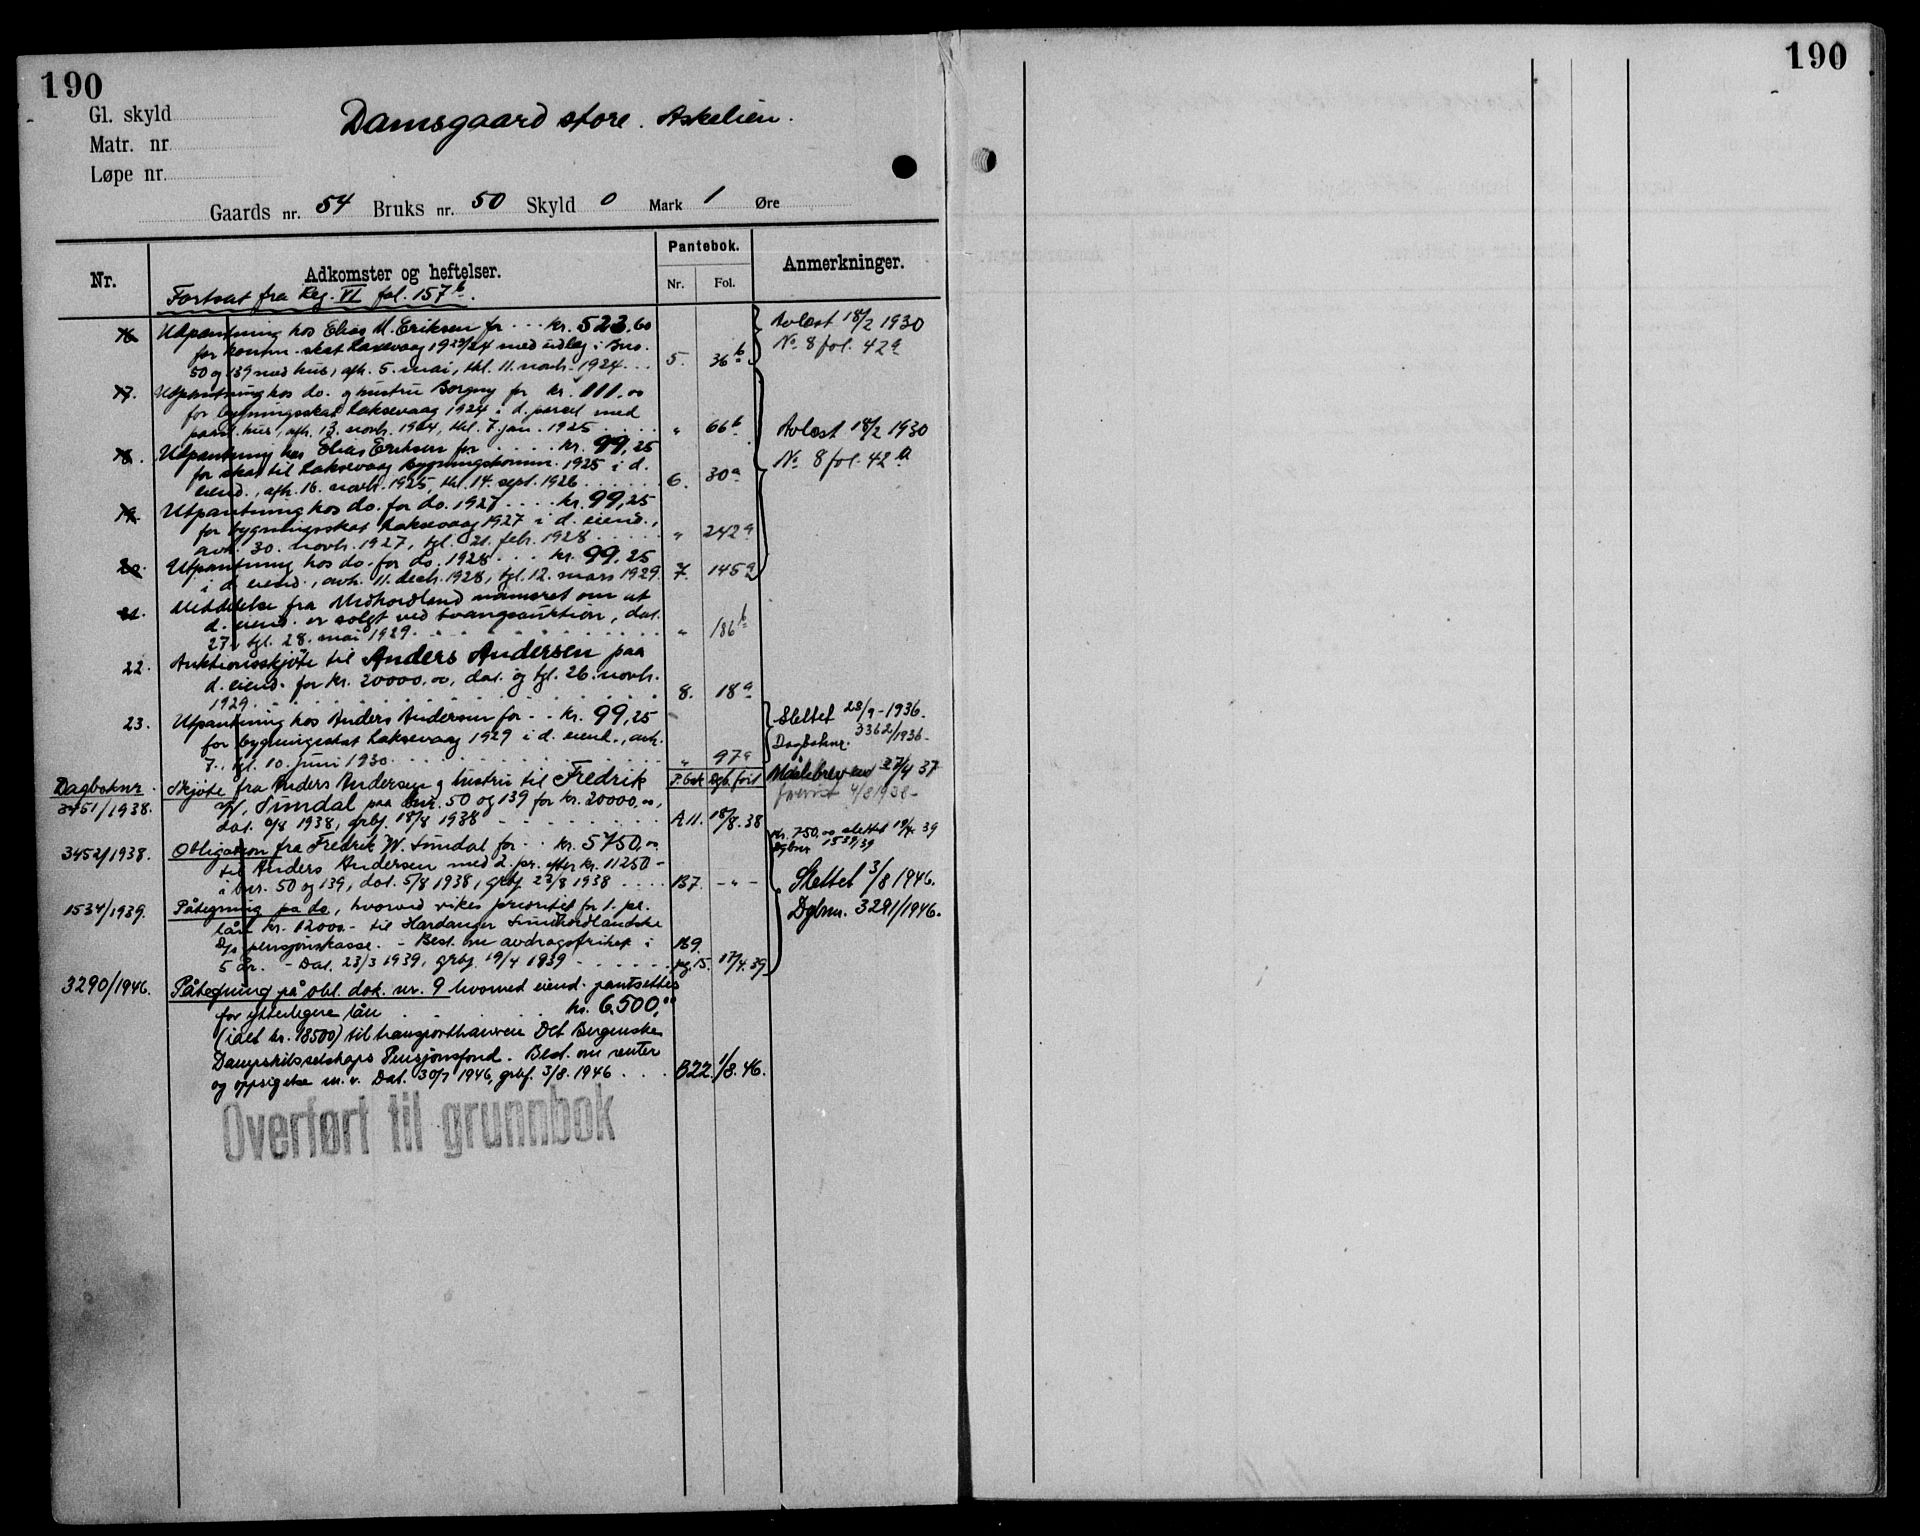 190
Gl. skyld
Matr. nr
Løpe nr.
Damsgaard store. Askelien.
Gaards nr. 54 Bruks nr. 50 Skyld 0 Mark 1 Øre
Nr. Adkomster og heftelser. Pantebok. Nr. Fol. Anmerkninger.
Fortsat fra Reg. VI fol. 157b.
16. Utpantning hos Elias M. Eriksen for - - - kr. 523.60
for komm. skat Laksevaag 1923/24 med udlæg i Bno.
50 og 139 med hus, afh. 5. mai, thl. 11. novbr. 1924 - - - 5. 36b
Avlæst 18/2 1930
No 8 fol. 42a
17. Utpantning hos do. og hustru Borgny for kr. 111.00
for bygningsskat Laksevaag 1924 i d. parcel med
paast. hus, afh. 13. novbr. 1924, thl. 7. jan. 1925 . . . . . " 66b
18. Utpantning hos Elias Eriksen for . . . . . kr. 99,25
for skat til Laksevaag Bygningskomm. 1925 i d.
eiend., afh. 16. novbr. 1925, thl. 14. sept. 1926 . . . . . . 6. 30a
Avlæst 18/2 1930
No 8 fol. 42a
19. Utpantning hos do. for do. 1927 . . . . kr. 99,25
for bygningsskat Laksevaag 1927 i d. eiend.,
avh. 30. novbr. 1927, tgl. 21. febr. 1928 . . . . . " 242a
20. Utpantning hos do. for do. 1928 . . . kr. 99,25
i d. eiend., avh. 11. decbr. 1928, tgl. 12. mars 1929. 7. 145a
21. Meddelelse fra Midhordland namsret om at
d. eiend. er solgt ved tvangsauktion, dat.
27., tgl. 28. mai 1929 . . . . . . . . . . " 186b
22. Auktionsskjøte til Anders Andersen paa
d. eiend. for kr. 20000.00, dat. og tgl. 26. novbr.
1929 . . . . . . . . . . . . 8. 18a
23. Utpantning hos Anders Andersen for - - kr. 99,25
for bygningsskat Laksevaag 1929 i d. eiend., avh.
7., tgl. 10. juni 1930 . . . . . . . . . . " 97a
Slettet 28/9 - 1936.
Dagboknr. 3362/1936 -
P.bok Dgb.ført
Målebrev 27/4 37
4/8 1938 -
Dagboknr. Skjøte fra Anders Andersen og hustru til Fredrik
3451/1938. W. Sundal paa bnr. 50 og 139 for kr. 20000,00,
dat. 5/8 1938, grbf. 18/8 1938 - - - - - - A 11. 18/8. 38
3452/1938. Obligasjon fra Fredrik W. Sundal for - - kr. 5750,00
til Anders Andersen med 2. pr. efter kr. 11250 -
i bnr. 50 og 139, dat. 5/8 1938, grbf. 23/8 1938 . . . . B7. - " -
kr. 750,00 slettet 19/4 39
Dgbnr. 1533/39
Slettet 3/8 1946.
Dgbnr. 3291/1946.
1534/1939. Påtegning på do, hvorved vikes prioritet for 1. pr.
lån kr. 12000 - til Hardanger Sunnhordlandske
D/s pensjonskasse. - Best. om avdragsfrihet i
5 år. - Dat. 23/3 1939, grbf. 19/4 1939 - - - - - B9. pg. 15. 17/4. 39
3290/1946. Påtegning på obl. dok. nr. 9 hvorved eiend. pantsettes
for ytterligere lån . . . . . kr. 6.500,00
(ialt kr. 18500) til transporthaveren Det Bergenske
Dampskibsselskaps Pensjonsfond. Best. om renter
og oppsigelse m.v. Dat. 30/7 1946, grbf. 3/8. 1946 . . . . B22. 1/8. 46.
Overført til grunnbok
190